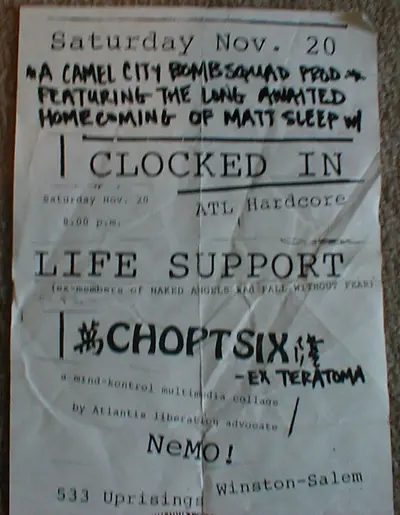 Saturday Nov. 20
A CAMEL CITY BOMBSQUAD PROD.
FEATURING THE LONG AWAITED
HOMECOMING OF MATT SLEEP w/
CLOCKED IN
Saturday Nov. 20
ATL Hardcore
8:00 p.m.
LIFE SUPPORT
(ex-members of NAKED ANGELS and FALL WITHOUT FEAR)
CHOPTSIX
- EX TERATOMA
a mind-kontrol multimedia collage
by Atlantis liberation advocate
NeMO!
533 Uprisings Winston-Salem